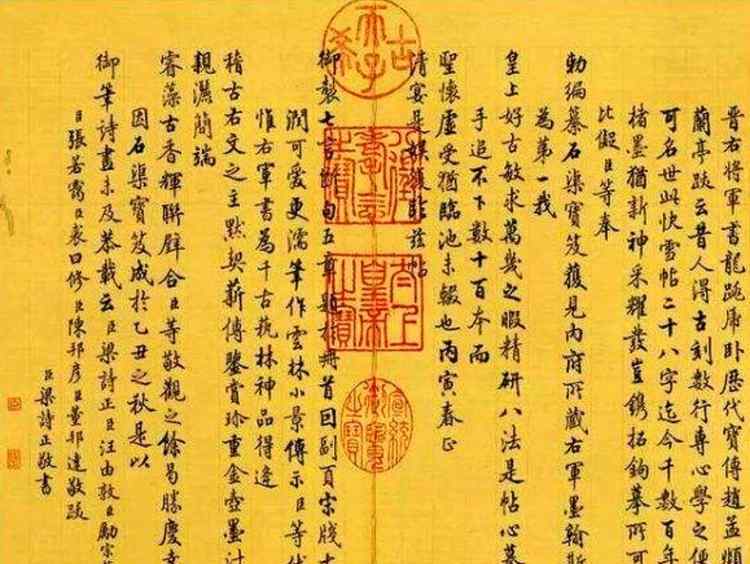 晉右將軍書龍跳虎卧歷代寶傳趙孟頫
蘭亭跋云昔人得古刻數行專心學之便
可名世此快雪帖二十八字迄今千數百年
楮墨猶新神采耀發豈鐫拓鉤摹所可
比儗臣等奉
勅編纂石渠寶笈獲見内府所藏右軍墨翰斯
為第一我
皇上好古敏求萬幾之暇精研八法是帖心摹
手追不下數十百本而
聖懷虛受猶臨池未輟也丙寅春正
清宴是娛復臨茲帖
古希天子
八徵耄念之寶
太上皇帝之寶
宣統御覽之寶
御製七言斷句五章題於冊首回副頁宋牋
潤可愛更濡筆作雲林小景傳示臣等伏
惟右軍書為千古執林神品得逢
稽古右文之主默契薪傳鑒賞珍重金壺墨汁
親灑簡端
睿藻古香輝聯璧合臣等敬觀之餘曷勝慶幸
因石渠寶笈成於乙丑之秋是以
御筆詩畫未及恭載云臣梁詩正臣汪由敦臣勵宗萬
臣張若靄臣裘曰修臣陳邦彥臣董邦達敬跋
臣梁詩正敬書